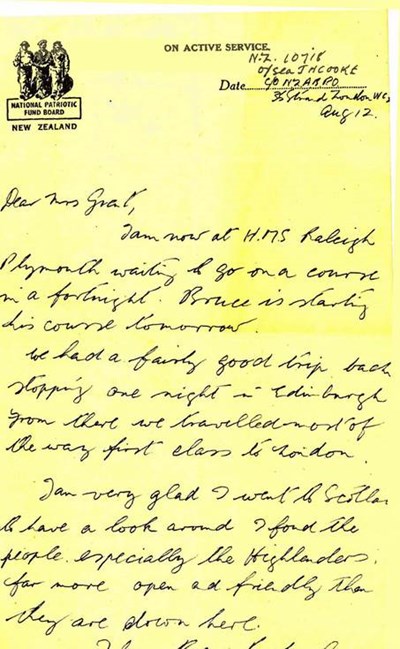 ON ACTIVE SERVICE
N.Z. 10718
O/Sea J H COOKE
Date
Strand London WC2
Aug 12.
NATIONAL PATRIOTIC
FUND BOARD
NEW ZEALAND
Dear Mrs Grant,
I am now at H.M.S Raleigh
Plymouth waiting to go on a course
in a fortnight. Bruce is starting
his course tomorrow.
We had a fairly good trip back
stopping one night in Edinburgh
From there we travelled most of
the way first class to London.
I am very glad I went to Scotlan
to have a look around I fond the
people. especially the Highlanders.
far more open ad friendly than
they are down here.